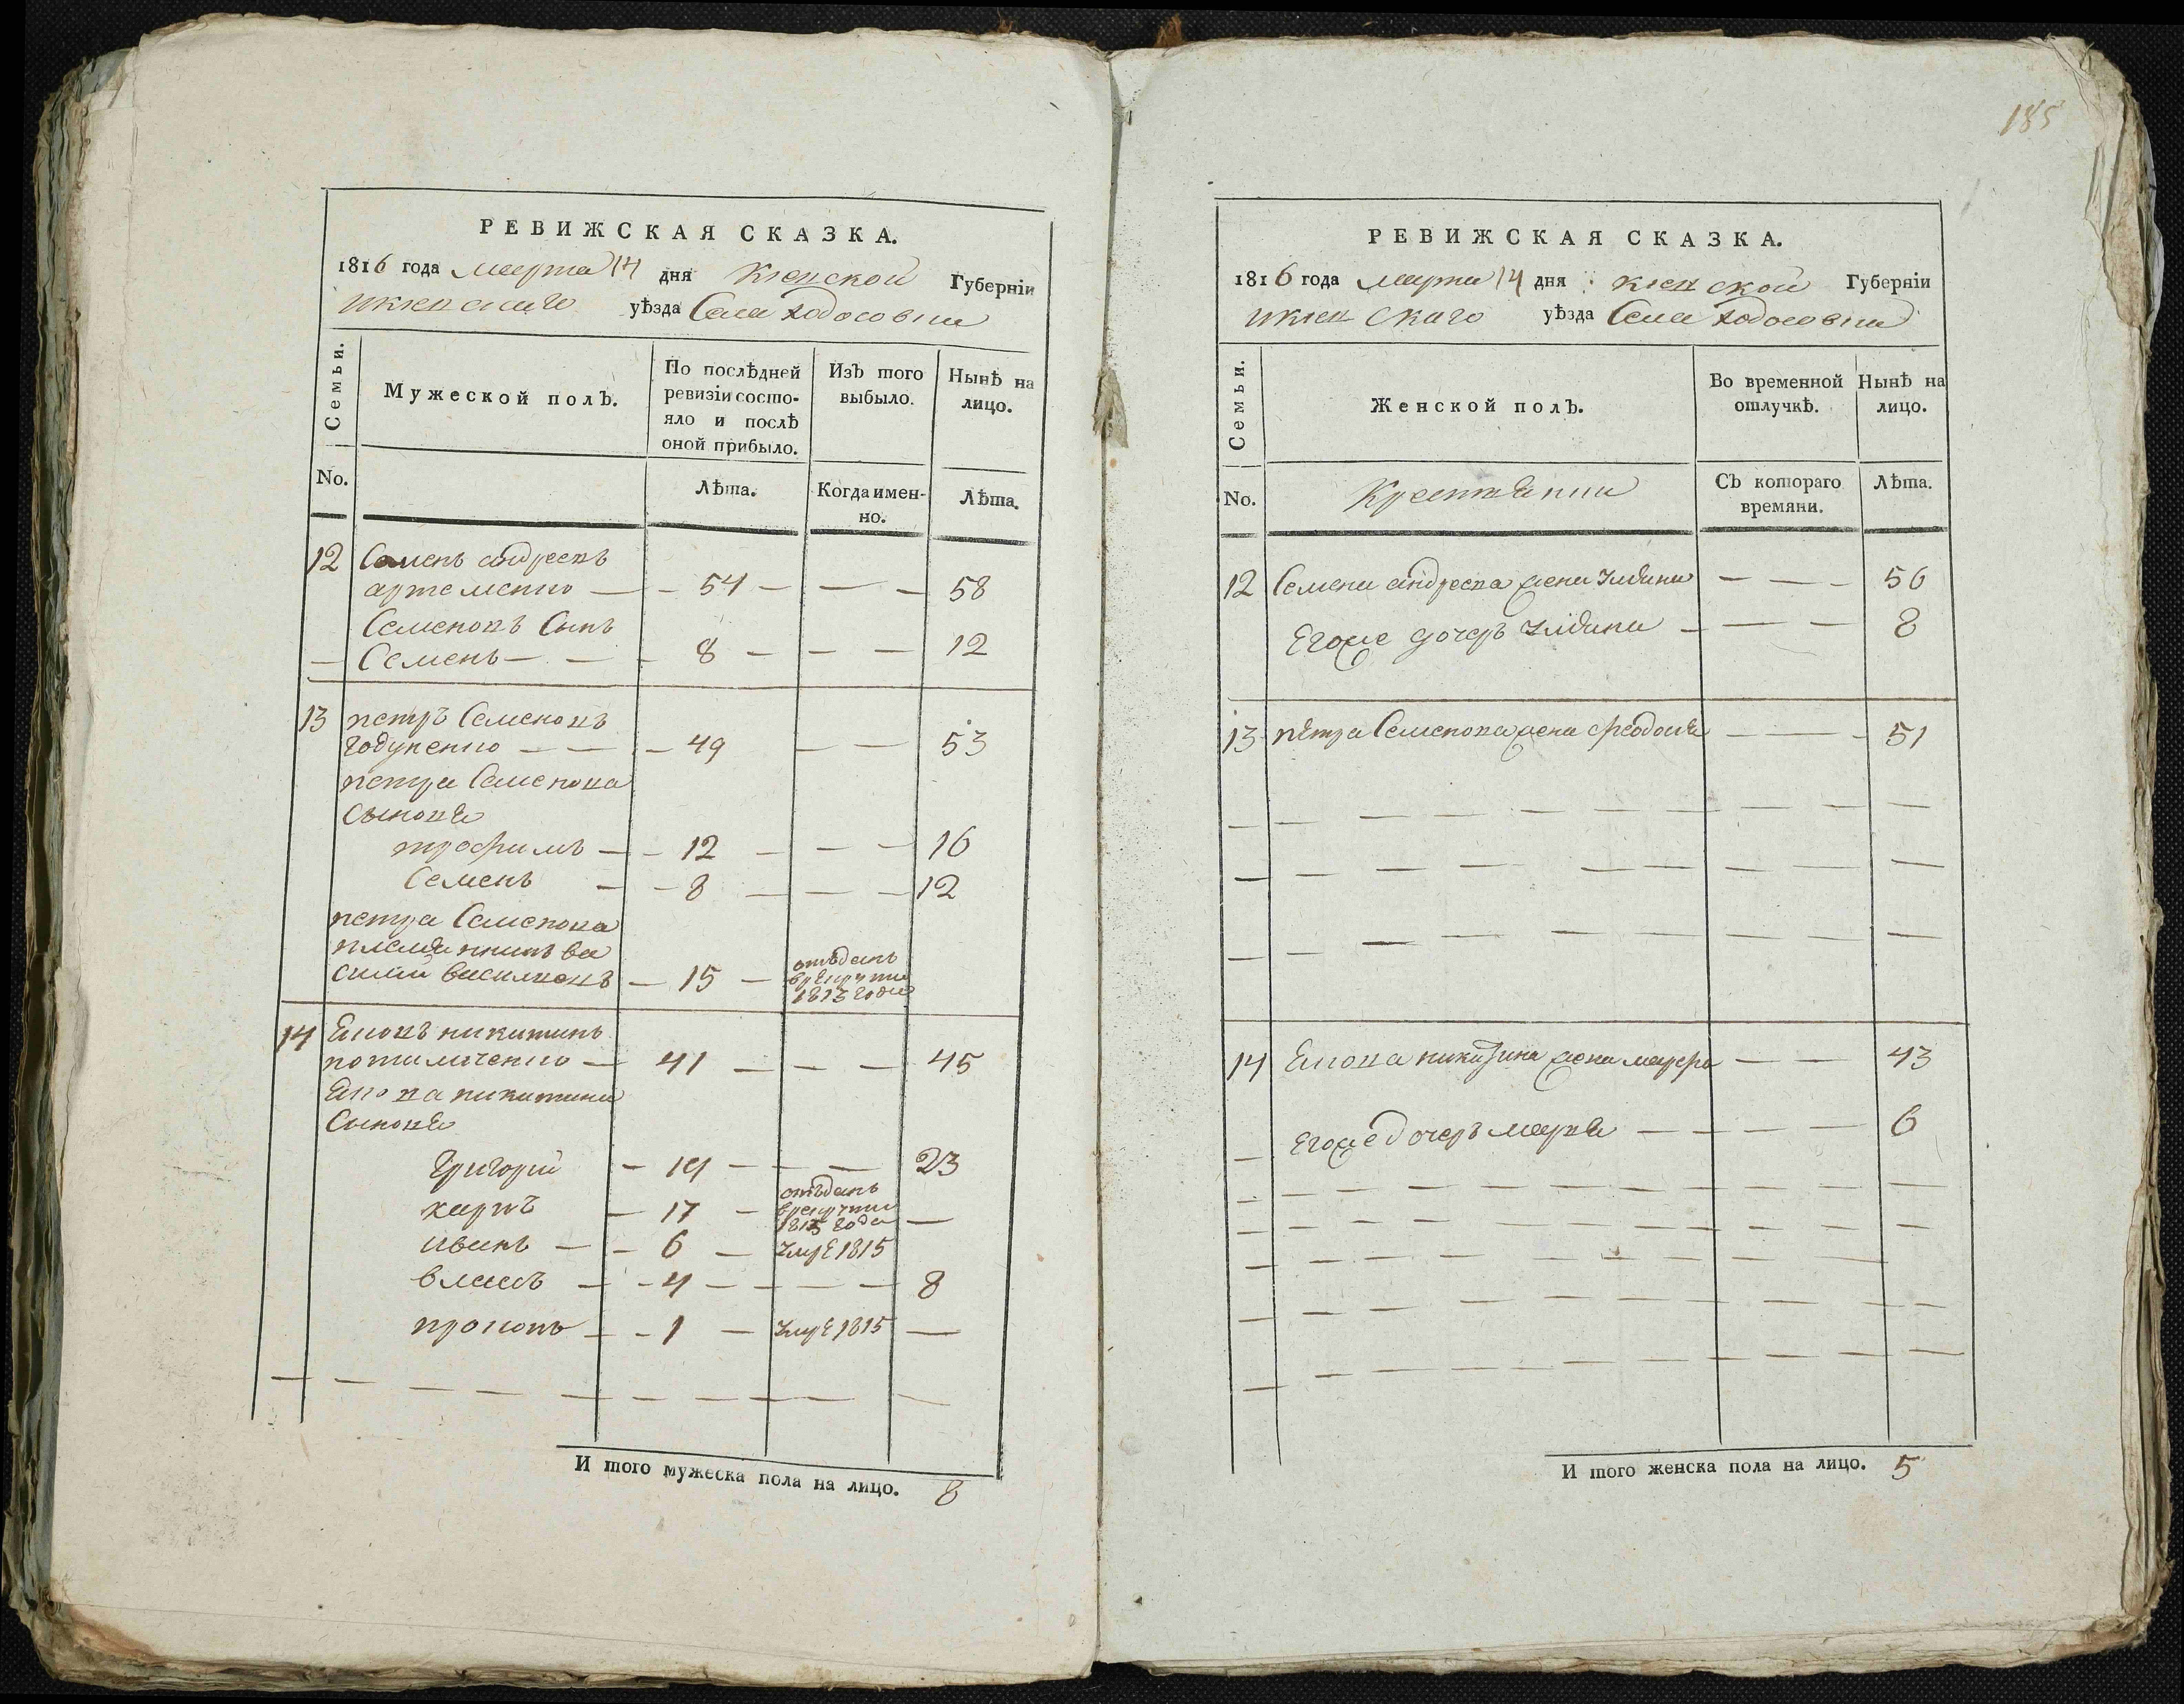 185
РЕВИЖСКАЯ СКАЗКА.
1816 года марта 14 дня Киевской Губерніи
икиевскаго уѣзда Села Ходосовки
Семьи.
Мужеской полъ.
По послѣдней ревизіи состояло и послѣ оной прибыло.
Изъ того выбыло.
Нынѣ на лицо.
No.
Лѣта.
Когда именно.
Лѣта.
12 Семенъ андреевъ
артеменко — 54 — — — 58
Семеновъ Сынъ
Семенъ — 8 — — — 12
13 петръ Семеновъ
годуненко — 49 — — 53
петра Семенова
Сыновя
трофимъ — 12 — — — 16
Семенъ — 8 — — — 12
петра Семенова
племянникъ ва
силий василиевъ — 15 — отъданъ
врекруты
1813 года
14 никитинъ
— 41 — — — 45
никитина
Сыновя
Григорий — 19 — — — 23
карпъ — 17 — отъданъ
врекруты
года —
иванъ — 6 — умре 1815
власъ — 4 — — — 8
прокопъ — 1 — умре 1815 —
И того мужеска пола на лицо. 8
РЕВИЖСКАЯ СКАЗКА.
1816 года марта 14 дня киевской Губерніи
икиевскаго уѣзда Села Ходосовки
Семьи.
Женской полъ.
Во временной отлучкѣ.
Нынѣ на лицо.
No.
Крестьянки
Съ котораго времяни.
Лѣта.
12 Семена андреева жена улияна — — — 56
Егоже дочеръ улияна — — — 8
13 пѣтра Семенова жена феодосия — — — 51
14 никитина жена мавра — — 43
Егоже дочеръ мария — — — — 6
И того женска пола на лицо. 5